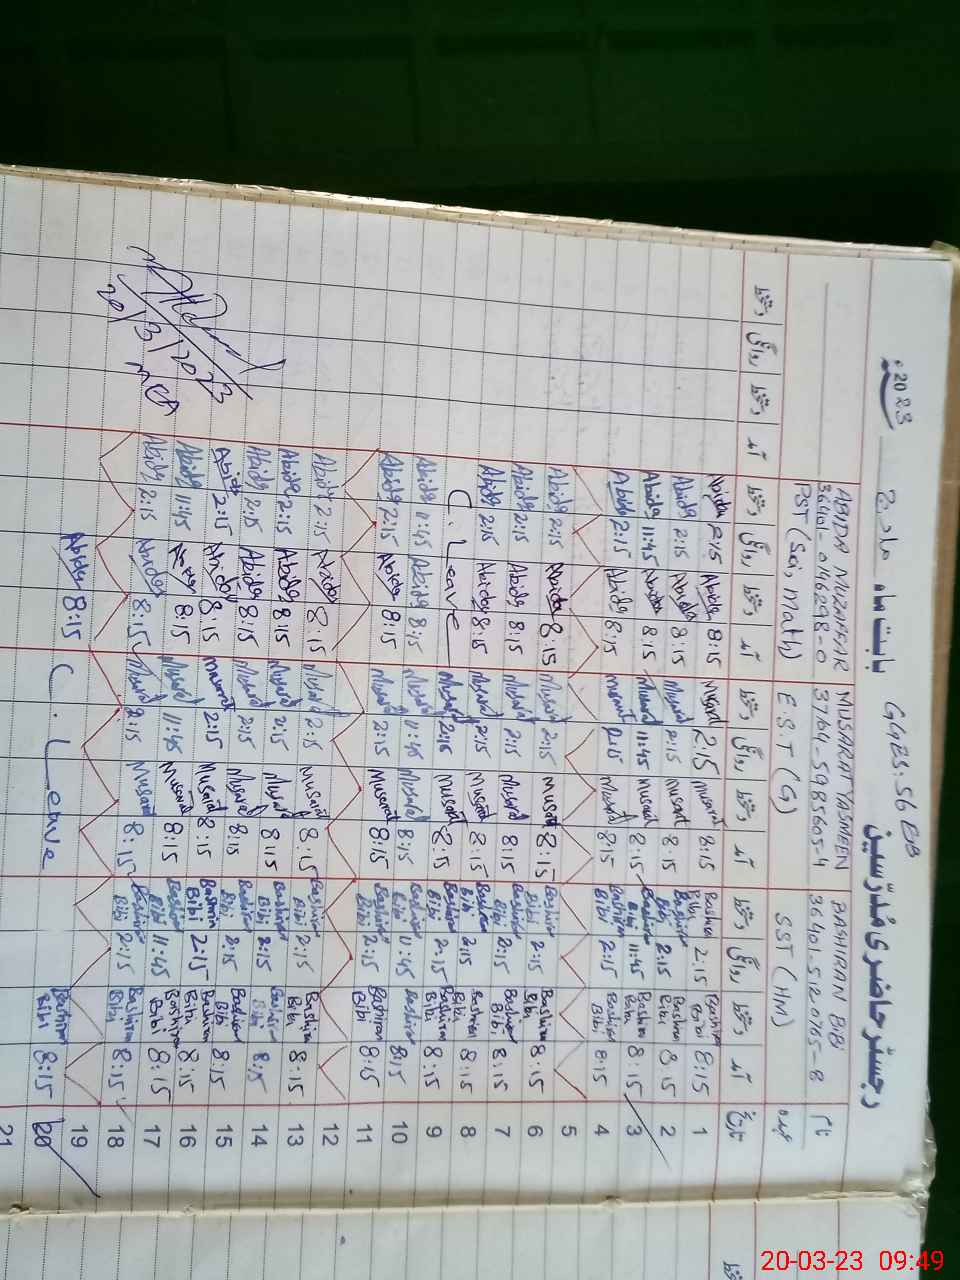 رجسٹر حاضری مدرسین
GGES: 56 BB
بابت ماہ مارچ 2023ء
نام BASHIRAN BIBI MUSARAT YASMEEN ABIDA MUZAFFAR
36401-5120765-8 37104-5985605-4 36401-0146298-0
عہدہ SST (HM) E.S.T (G) PST (Sci, Math)
تاریخ آمد دستخط روانگی دستخط آمد دستخط روانگی دستخط آمد دستخط روانگی دستخط آمد دستخط روانگی دستخط
Abida 2:15 Abida 8:15 Musarat 2:15 Musarat 8:15 Bashiran Bibi 2:15 Bashiran Bibi 8:15 1
Abida 2:15 Abida 8:15 Musarat 2:15 Musarat 8:15 Bashiran Bibi 2:15 Bashiran Bibi 8:15 2
Abida 11:45 Abida 8:15 Musarat 11:45 Musarat 8:15 Bashiran Bibi 11:45 Bashiran Bibi 8:15 3
Abida 2:15 Abida 8:15 Musarat 2:15 Musarat 8:15 Bashiran Bibi 2:15 Bashiran Bibi 8:15 4
5
Abida 2:15 Abida 8:15 Musarat 2:15 Musarat 8:15 Bashiran Bibi 2:15 Bashiran Bibi 8:15 6
Abida 2:15 Abida 8:15 Musarat 2:15 Musarat 8:15 Bashiran Bibi 2:15 Bashiran Bibi 8:15 7
Abida 2:15 Abida 8:15 Musarat 2:15 Musarat 8:15 Bashiran Bibi 2:15 Bashiran Bibi 8:15 8
C. Leave Musarat 2:15 Musarat 8:15 Bashiran Bibi 2:15 Bashiran Bibi 8:15 9
Abida 11:45 Abida 8:15 Musarat 11:45 Musarat 8:15 Bashiran Bibi 11:45 Bashiran Bibi 8:15 10
Abida 2:15 Abida 8:15 Musarat 2:15 Musarat 8:15 Bashiran Bibi 2:15 Bashiran Bibi 8:15 11
12
Abida 2:15 Abida 8:15 Musarat 2:15 Musarat 8:15 Bashiran Bibi 2:15 Bashiran Bibi 8:15 13
Abida 2:15 Abida 8:15 Musarat 2:15 Musarat 8:15 Bashiran Bibi 2:15 Bashiran Bibi 8:15 14
Abida 2:15 Abida 8:15 Musarat 2:15 Musarat 8:15 Bashiran Bibi 2:15 Bashiran Bibi 8:15 15
Abida 2:15 Abida 8:15 Musarat 2:15 Musarat 8:15 Bashiran Bibi 2:15 Bashiran Bibi 8:15 16
Abida 11:45 Abida 8:15 Musarat 11:45 Musarat 8:15 Bashiran Bibi 11:45 Bashiran Bibi 8:15 17
Abida 2:15 Abida 8:15 Musarat 2:15 Musarat 8:15 Bashiran Bibi 2:15 Bashiran Bibi 8:15 18
19
Abida 8:15 C. Leave Bashiran Bibi 8:15 20
21
20/3/2023
MEA
دستخط
20-03-23 09:49